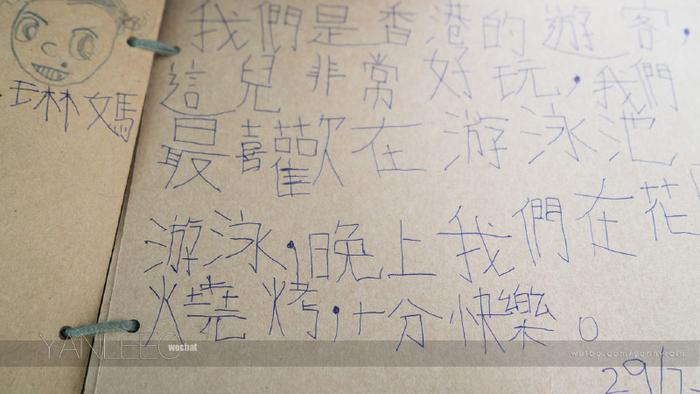 琳媽
我們是香港的遊客，
這兒非常好玩，我們
最喜歡在游泳池
游泳，晚上我們在花
燒烤，十分快樂。
29/7
YANLEEC
wechat